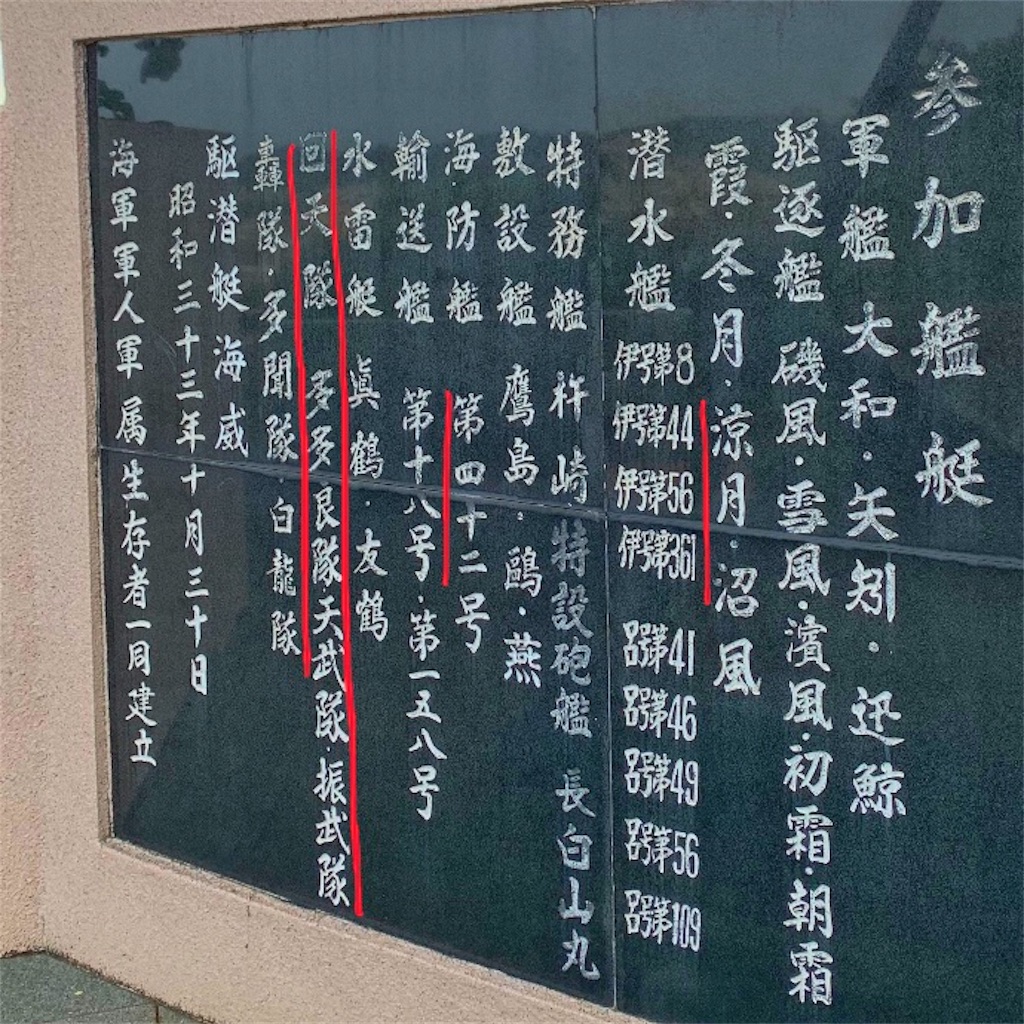 参加艦艇
軍艦 大和・矢矧・迅鯨
駆逐艦 磯風・雪風・濱風・初霜・朝霜
霞・冬月・涼月・沼風
潜水艦 伊号第8 伊号第44 伊号第56 伊号第361 呂号第41 呂号第46 呂号第49 呂号第56 呂号第109
特務艦 杵崎・特設砲艦 長白山丸
敷設艦 鷹島・鷗・燕
海防艦 第四十二号
輸送艦 第十八号・第一五八号
水雷艇 眞鶴・友鶴
回天隊 多多良隊・天武隊・振武隊
轟隊・多聞隊・白龍隊
駆潜艇 海威
昭和三十三年十月三十日
海軍軍人軍属生存者一同建立